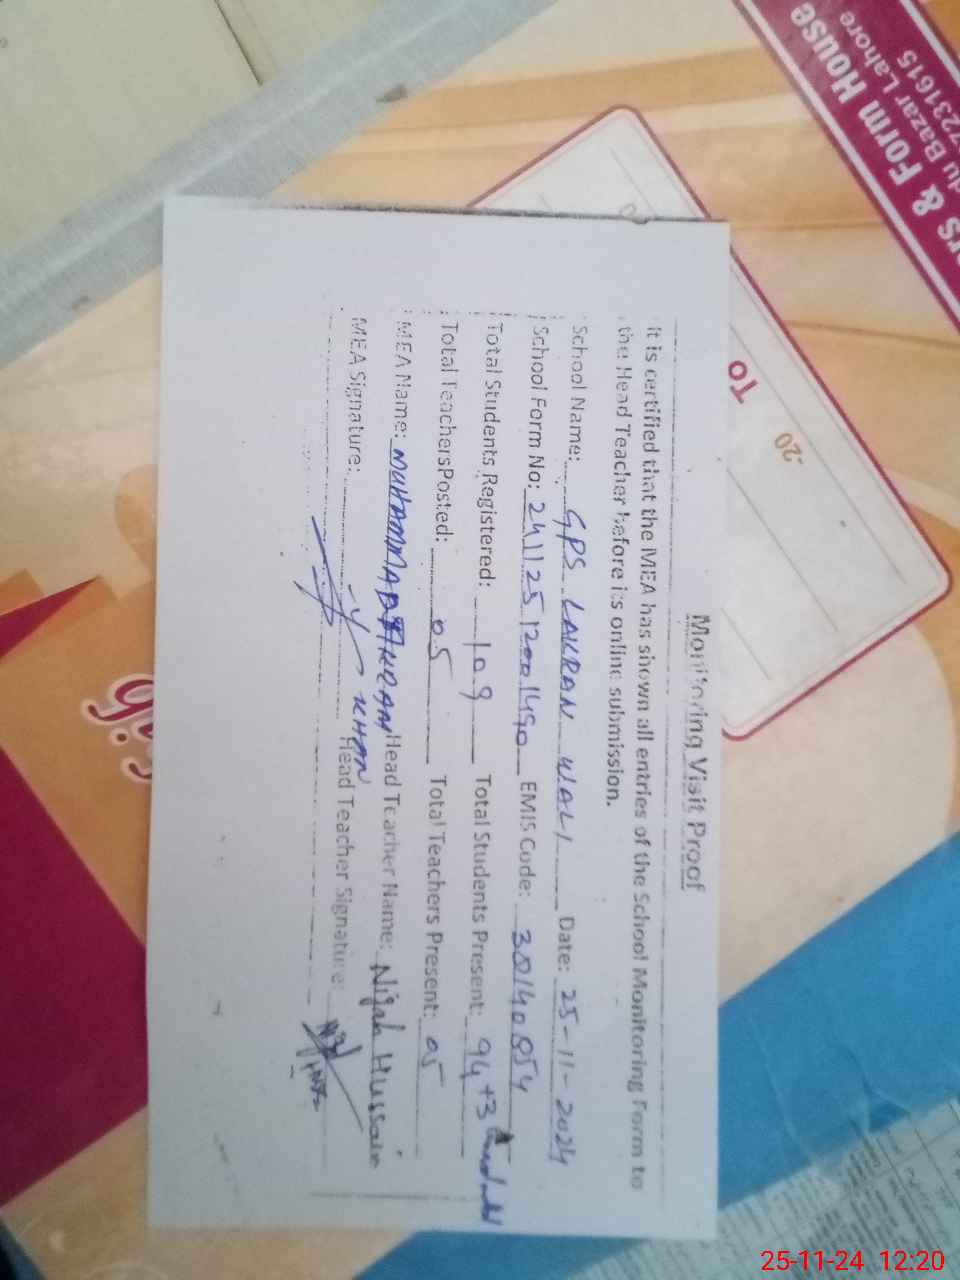 Monitoring Visit Proof
It is certified that the MEA has shown all entries of the School Monitoring Form to
the Head Teacher before its online submission.
School Name: GPS LAKRAN WALI Date: 25-11-2024
School Form No: 24112512001490 EMIS Code: 38140854
Total Students Registered: 109 Total Students Present: 94+3
Total TeachersPosted: 05 Total Teachers Present: 05
MEA Name: MUHAMMAD AKRAM KHAN Head Teacher Name: Nijah Hussain
MEA Signature: Head Teacher Signature:
rs & Form House
du Bazar Lahore
7231615
To
-20
25-11-24 12:20